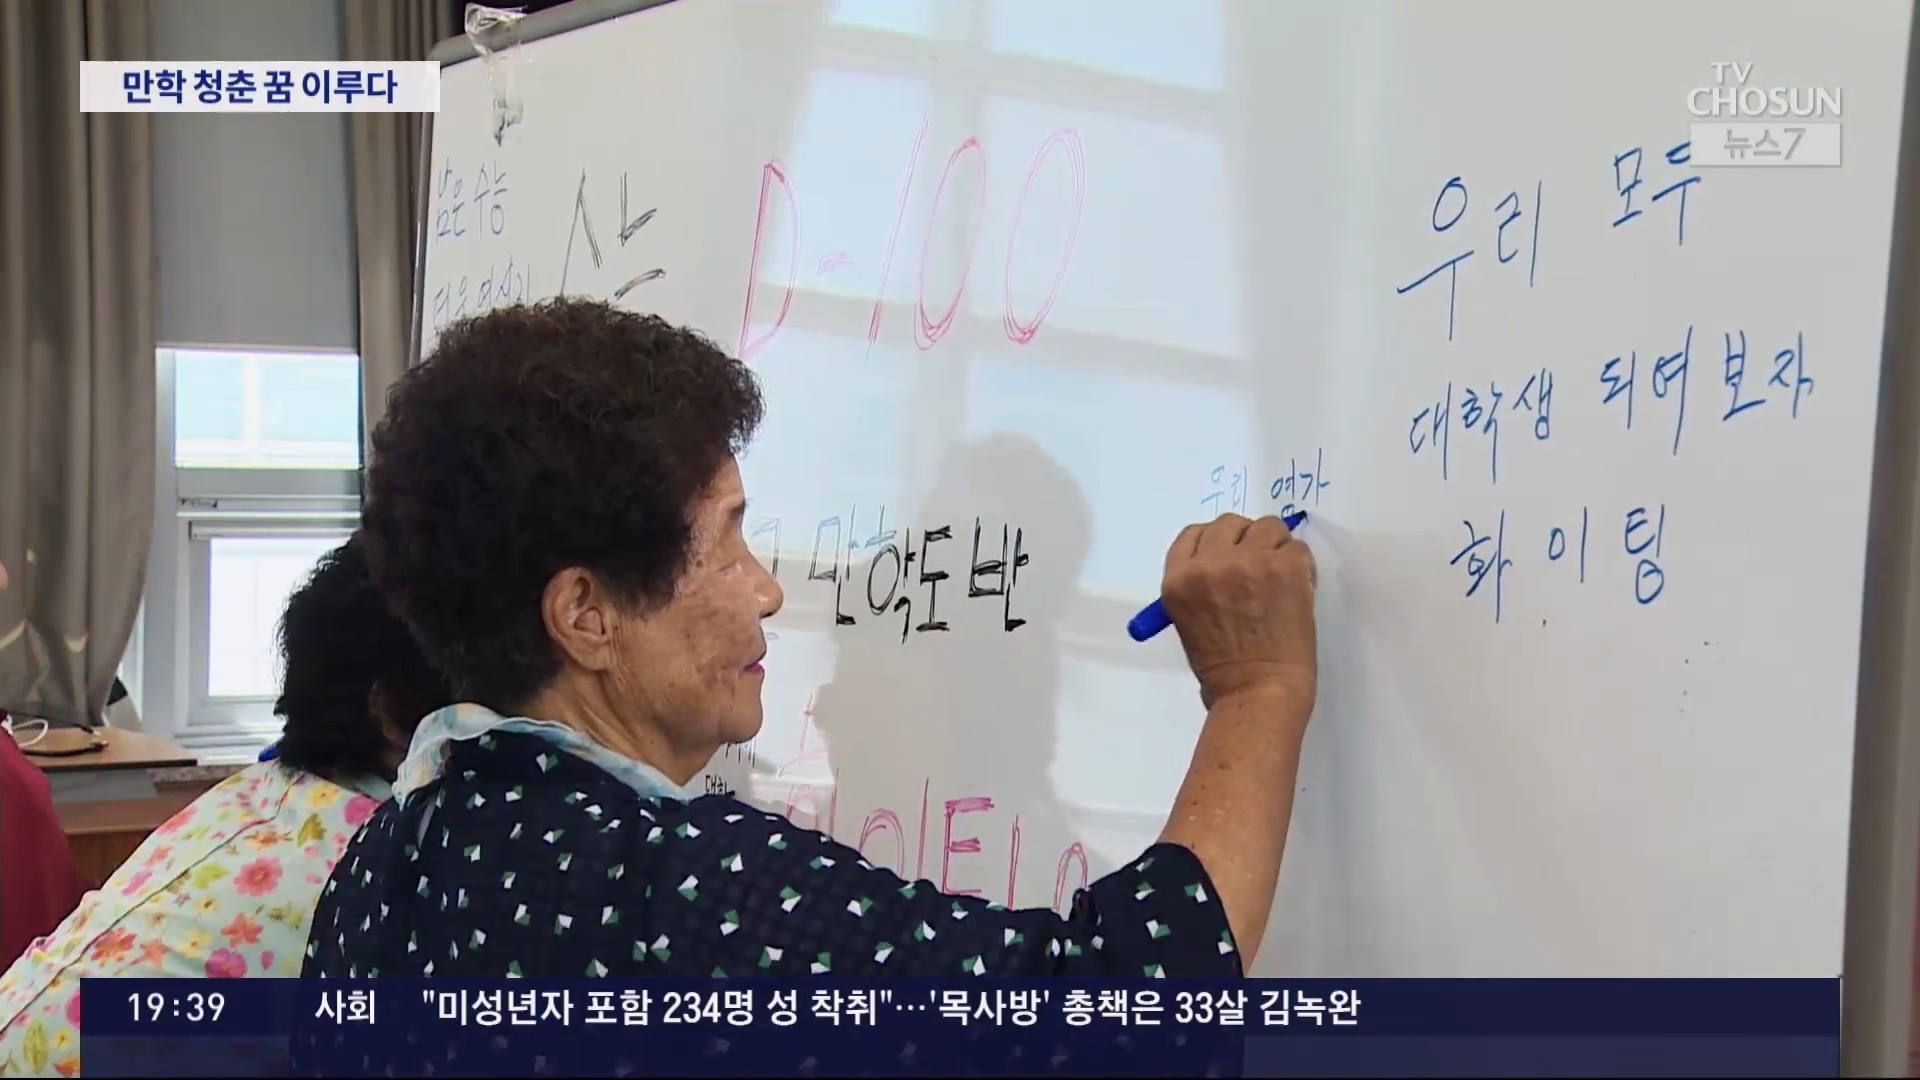 만학 청춘 꿈 이루다
TV
CHOSUN
뉴스7
남은 수능
D-100
우리 모두
대학생 되여 보자
화이팅
우리 열가
만학도반
19:39 사회 "미성년자 포함 234명 성 착취"…'목사방' 총책은 33살 김녹완